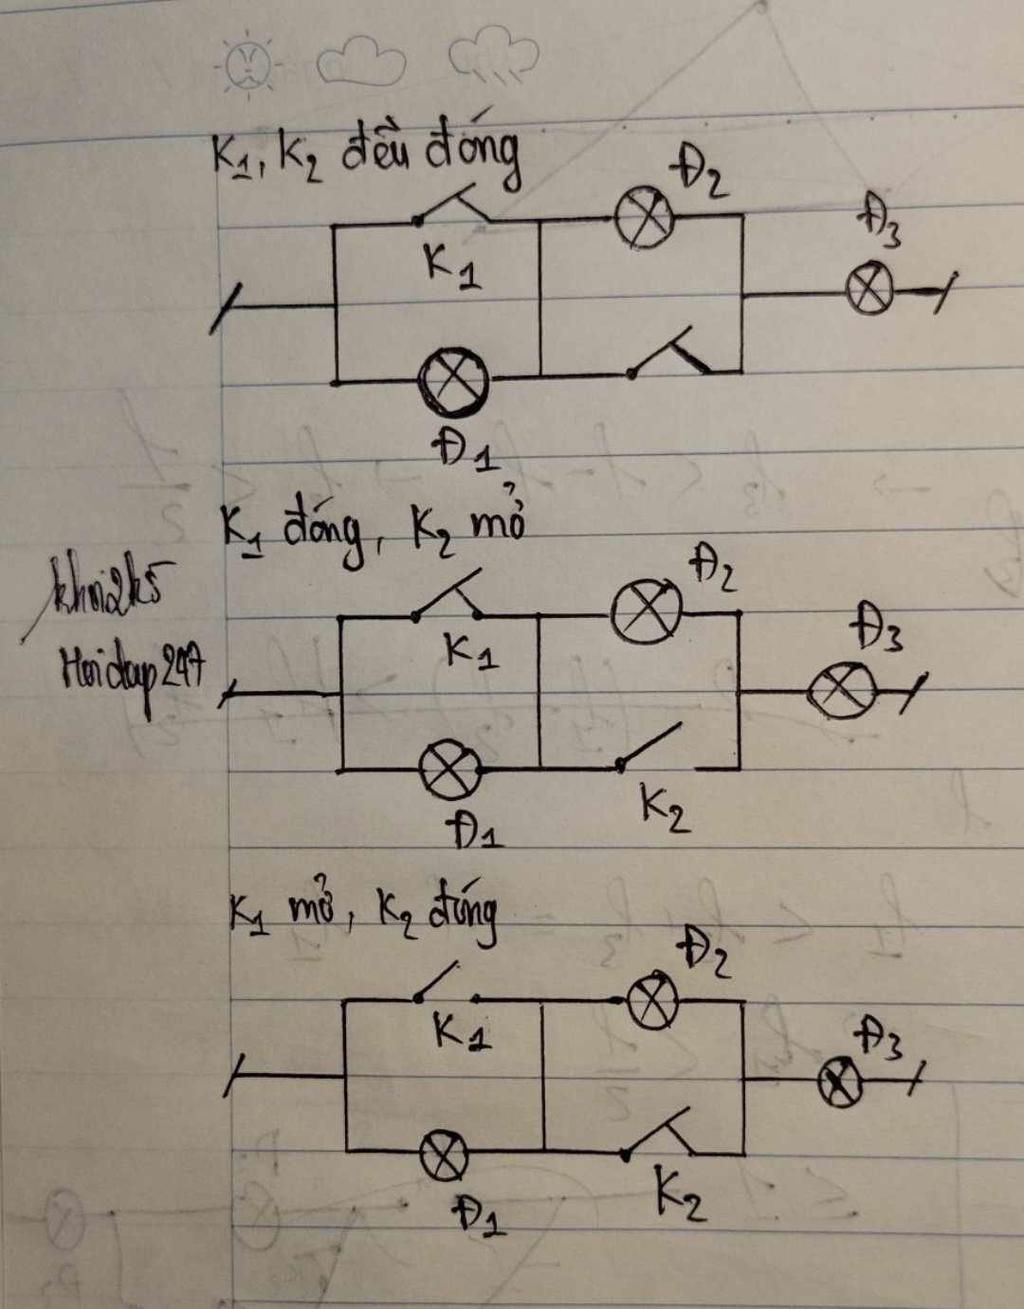 K1, K2 đều đóng
Đ2
Đ3
K1
Đ1
K1 đóng, K2 mở
Đ2
khoi2k5
Hoidap247
K1
Đ3
K2
Đ1
K1 mở, K2 đóng
Đ2
K1
Đ3
K2
Đ1